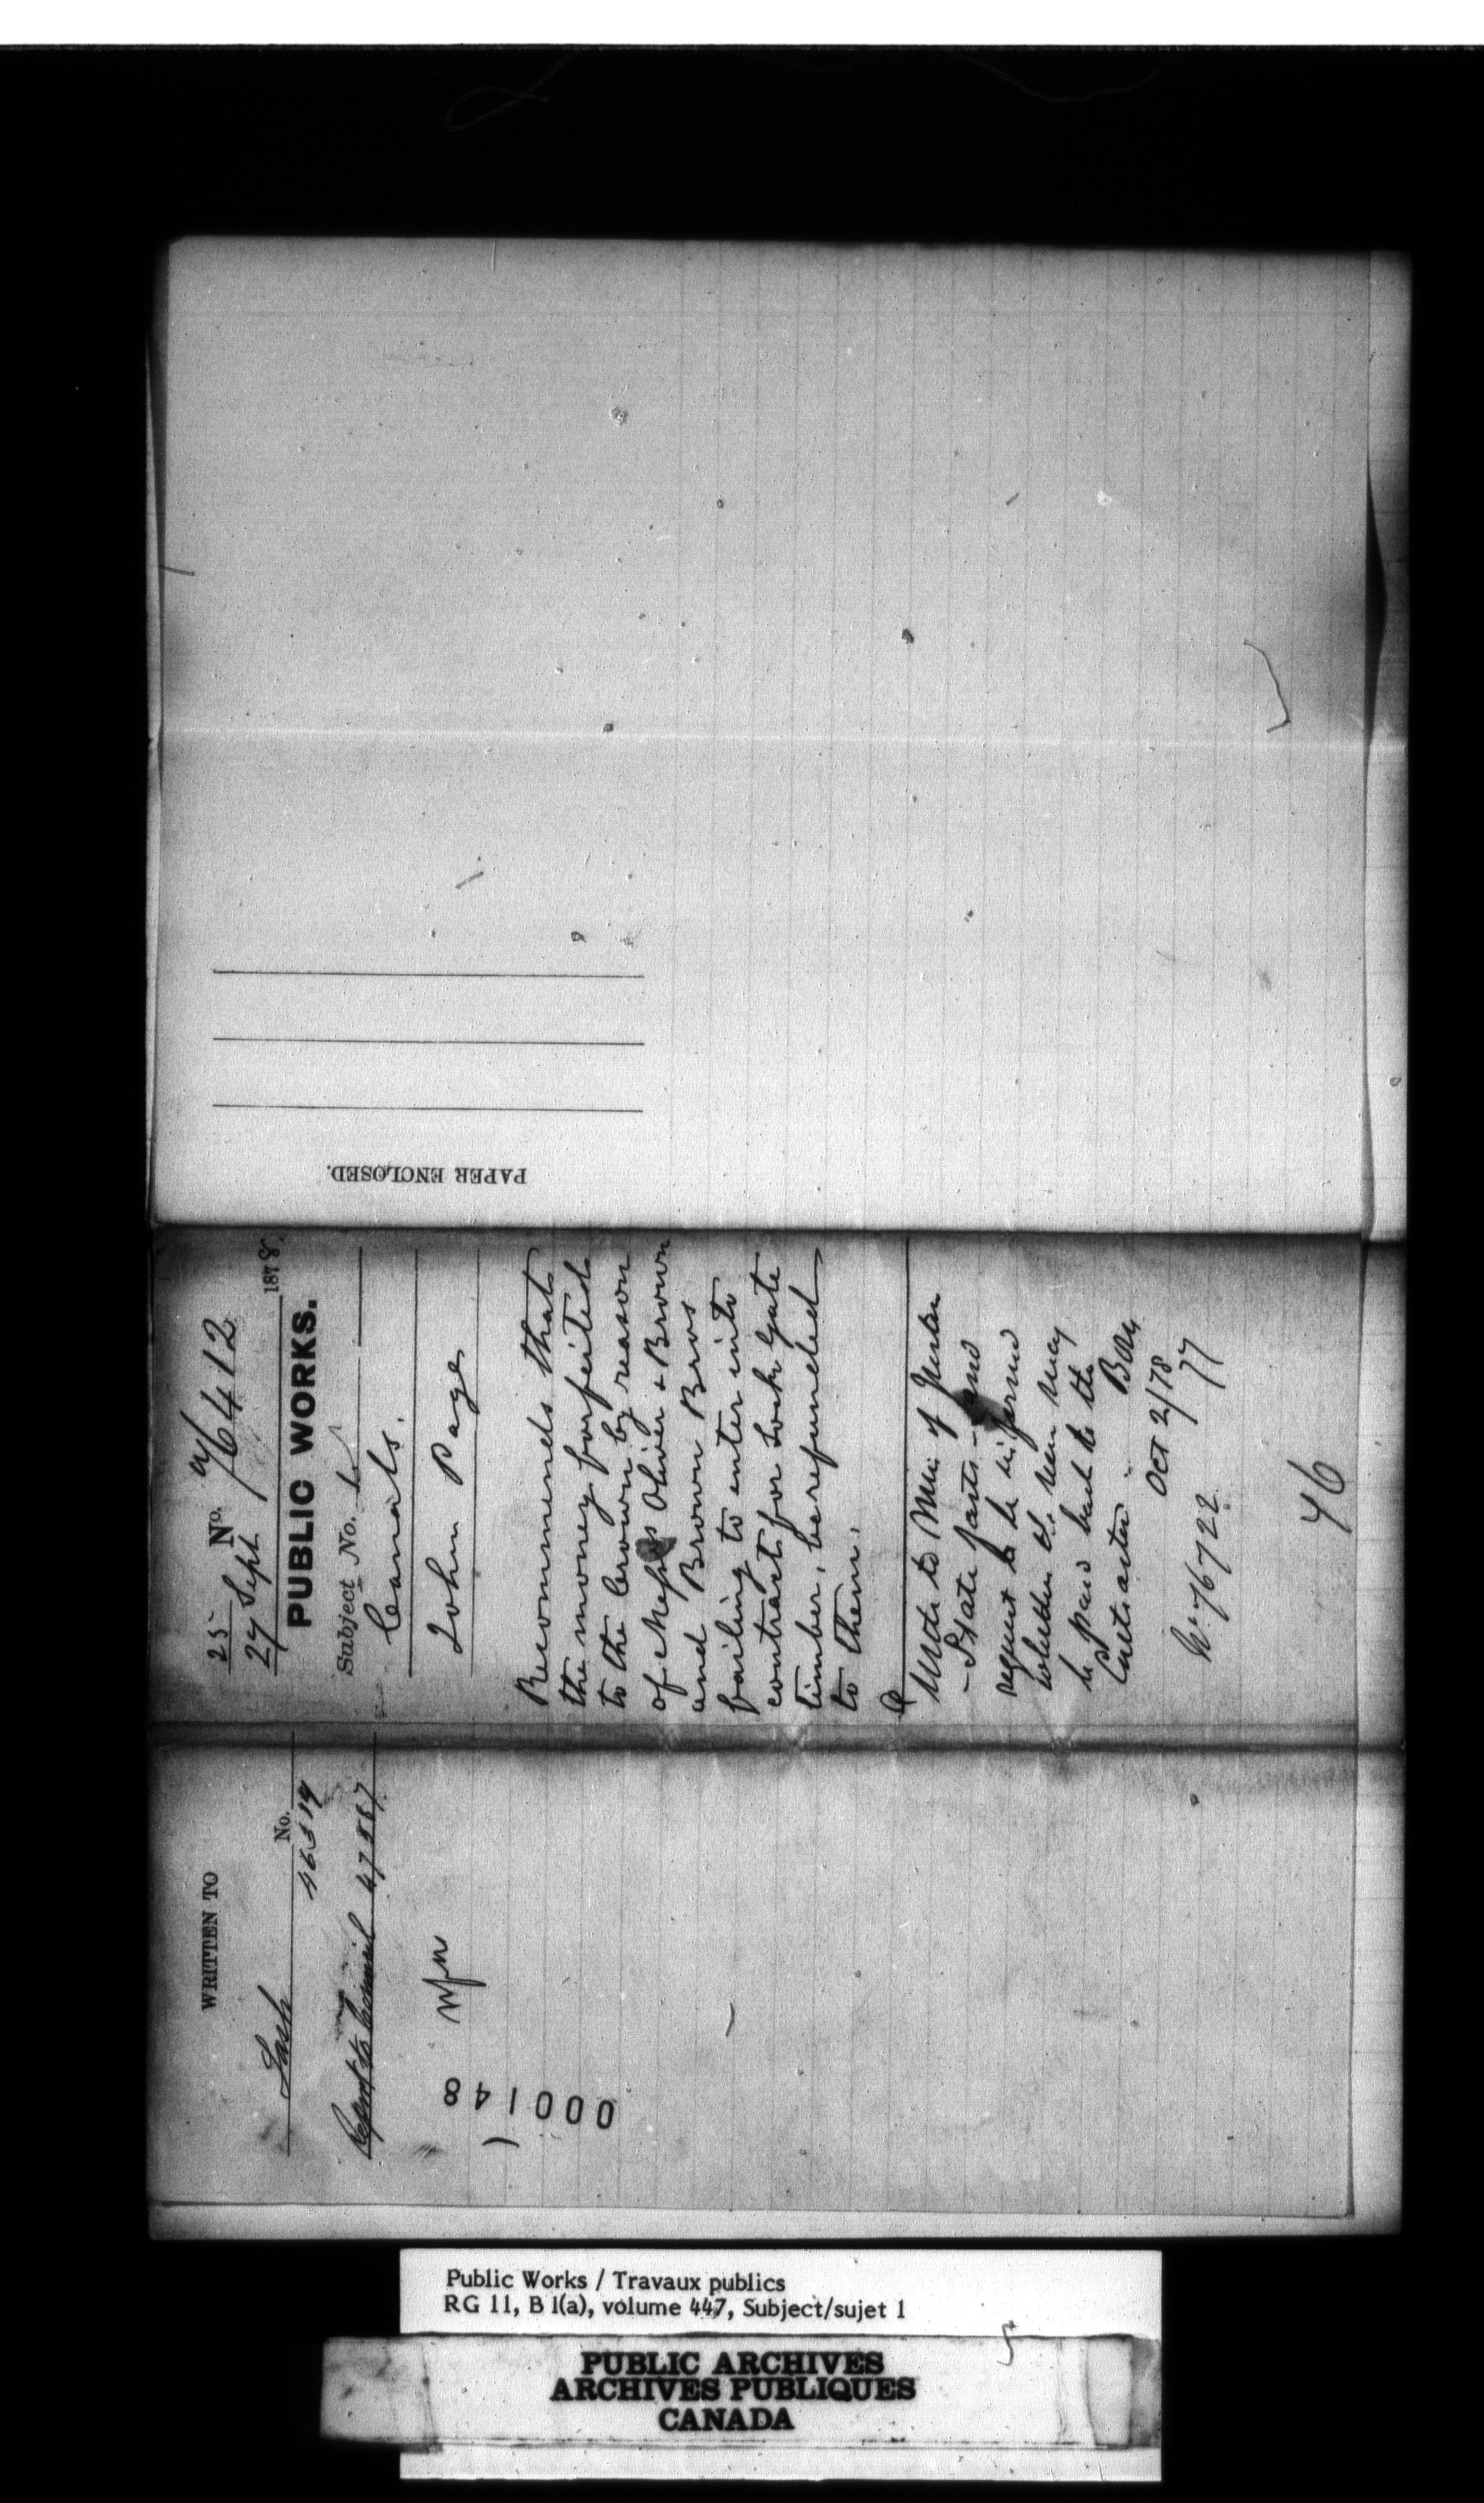 PAPER ENCLOSED.
25 No. 76412
27 Sept 1878
PUBLIC WORKS.
Subject No. 1
Canals.
John Page
Recommends that
the money forfeited
to the Crown by reason
of Messrs Oliver & Brown
and Brown Bros
failing to enter into
contracts for Lock Gate
timber, be refunded
to them.
Write to Min of Justice
- State facts - and
request to be informed
whether the sum may
be paid back to the
Contractor -
Oct 2/78
No 76722
77
46
WRITTEN TO
No.
Lash 46519
Report to Council 47887
000148
Public Works / Travaux publics
RG 11, B 1(a), volume 447, Subject/sujet 1
5
PUBLIC ARCHIVES
ARCHIVES PUBLIQUES
CANADA